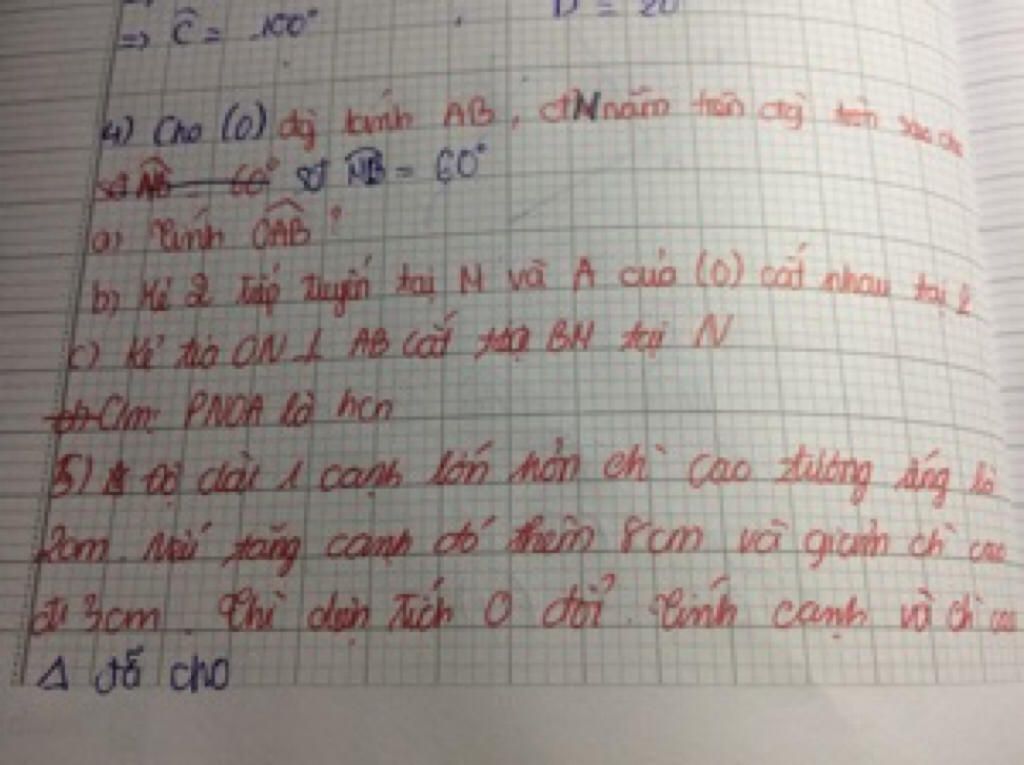 ⇒ Ĉ = 100° D = 20
4) Cho (O) đg kính AB, đ' M nằm trên đg tròn sao cho
sđ MB = 60°
a) Tính OAB ?
b) Kẻ 2 tiếp tuyến tại M và A của (O) cắt nhau tại
c) Kẻ tia ON ⊥ AB cắt tia BM tại N
Cm: PNOA là hcn
5) Độ dài 1 cạnh lớn hơn ch` cao tương ứng là
2cm. Nếu tăng cạnh đó thêm 8cm và giảm ch` cao
đi 3cm. Thì diện tích O đổi. Tính cạnh và ch` cao
Δ đã cho